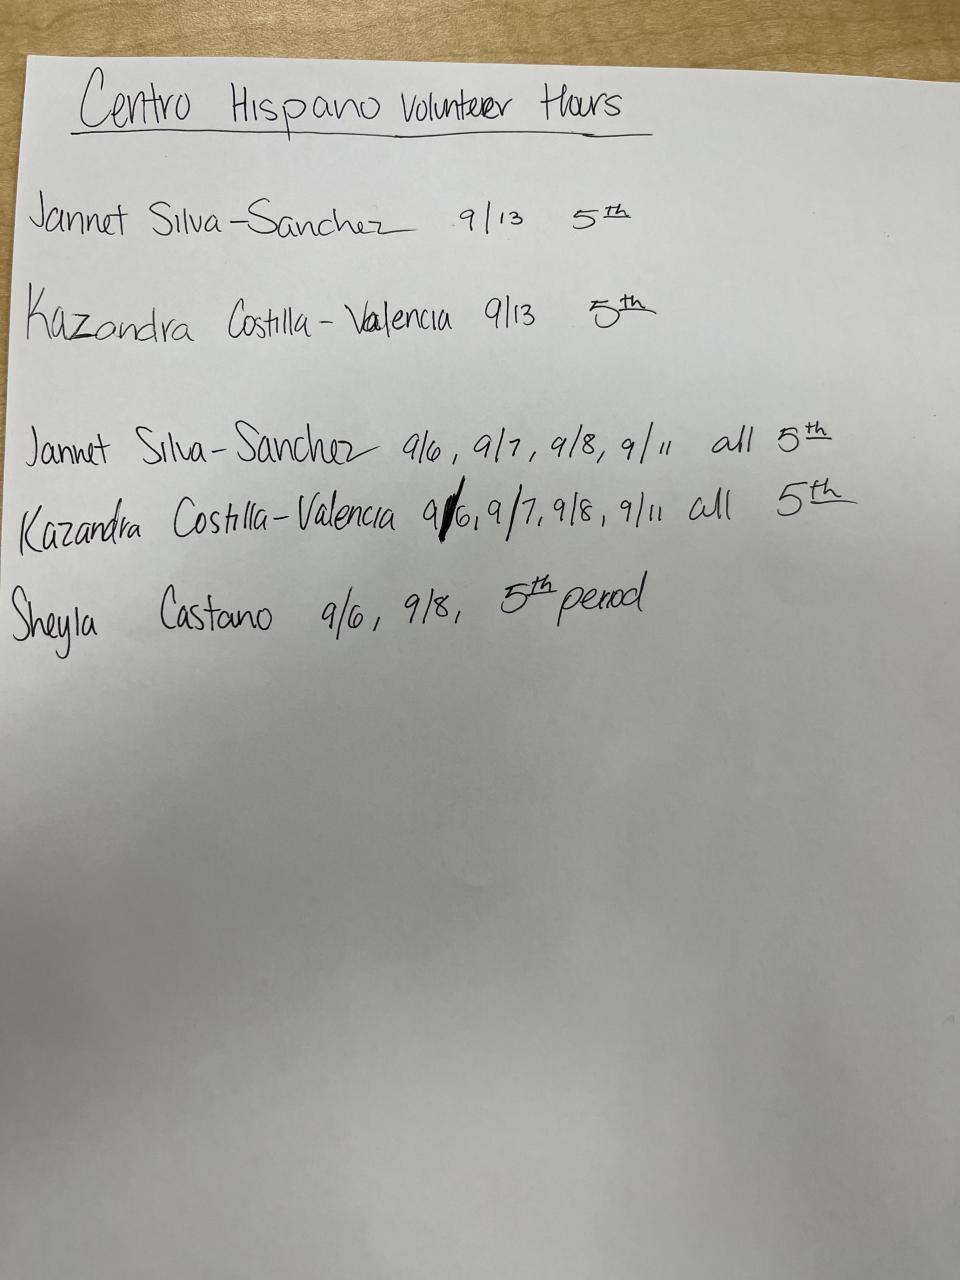 Centro Hispano Volunteer Hours
Jannet Silva-Sanchez 9/13 5th
Kazandra Costilla-Valencia 9/13 5th
Jannet Silva-Sanchez 9/6, 9/7, 9/8, 9/11 all 5th
Kazandra Costilla-Valencia 9/6, 9/7, 9/8, 9/11 all 5th
Sheyla Castano 9/6, 9/8, 5th period